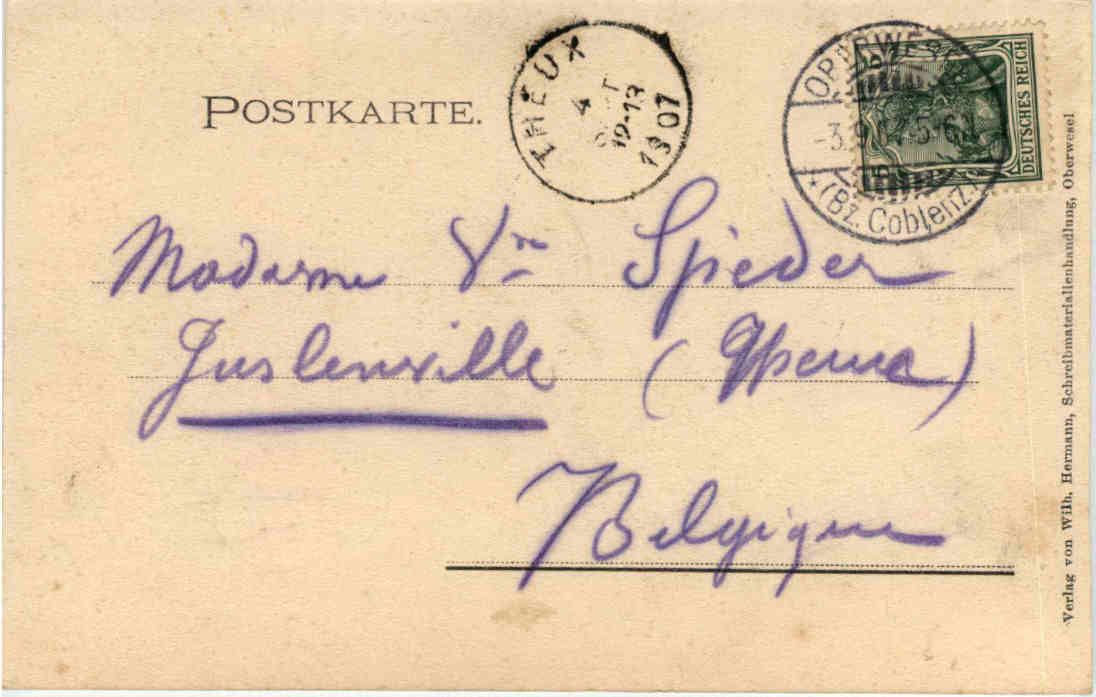 POSTKARTE.
THEUX
4
12-13
1907
OBERWESEL
-3.9. 5-6
* (Bz. Coblenz.)
DEUTSCHES REICH
Madame Vve Spieder
Juslenville (
Belgique
Verlag von Wilh. Hermann, Schreibmaterialienhandlung, Oberwesel